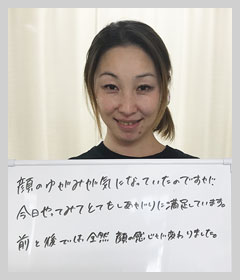 顔のゆがみが気になっていたのですが
今日やってみてとてもしあがりに満足しています。
前と後では全然 顔の感じがかわりました。